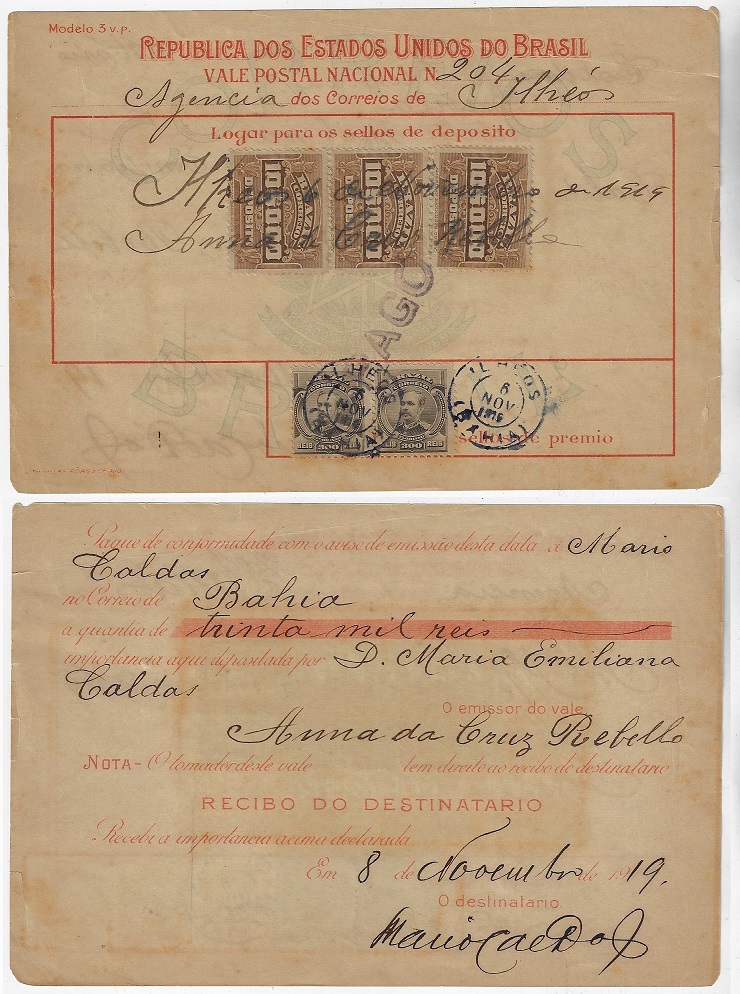 Modelo 3 v. p.
REPUBLICA DOS ESTADOS UNIDOS DO BRASIL
VALE POSTAL NACIONAL N. 204
Agencia dos Correios de Ilhéos
Logar para os sellos de deposito
Ilheos 6 de de 1919
Anna da Cruz Rebello
10$000 10$000 10$000
DEPOSITO DEPOSITO DEPOSITO
PAGO
ILHEOS
6
NOV
1919
(BAHIA)
ILHEOS
6
NOV
1919
(BAHIA)
REIS 300 300 REIS
sellos de premio
Pague de conformidade com o aviso de emissão desta data a Mario
Caldas
no Correio de Bahia
a quantia de trinta mil reis
importancia aqui depositada por D. Maria Emiliana
Caldas
O emissor do vale
Anna da Cruz Rebello
NOTA - O tomador deste vale tem direito ao recibo de destinatario
RECIBO DO DESTINATARIO
Recebi a importancia acima declarada
Em 8 de Novembro de 1919.
O destinatario
Mario Caldas